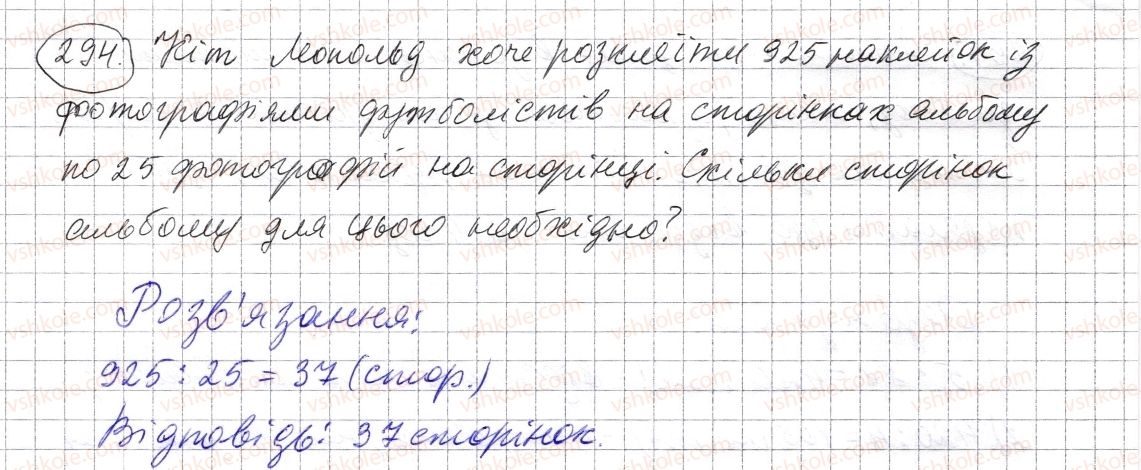 294. Кіт Леопольд хоче розклеїти 925 наклейок із
фотографіями футболістів на сторінках альбому
по 25 фотографій на сторінці. Скільки сторінок
альбому для цього необхідно?
Розв'язання:
925 : 25 = 37 (стор.)
Відповідь: 37 сторінок.